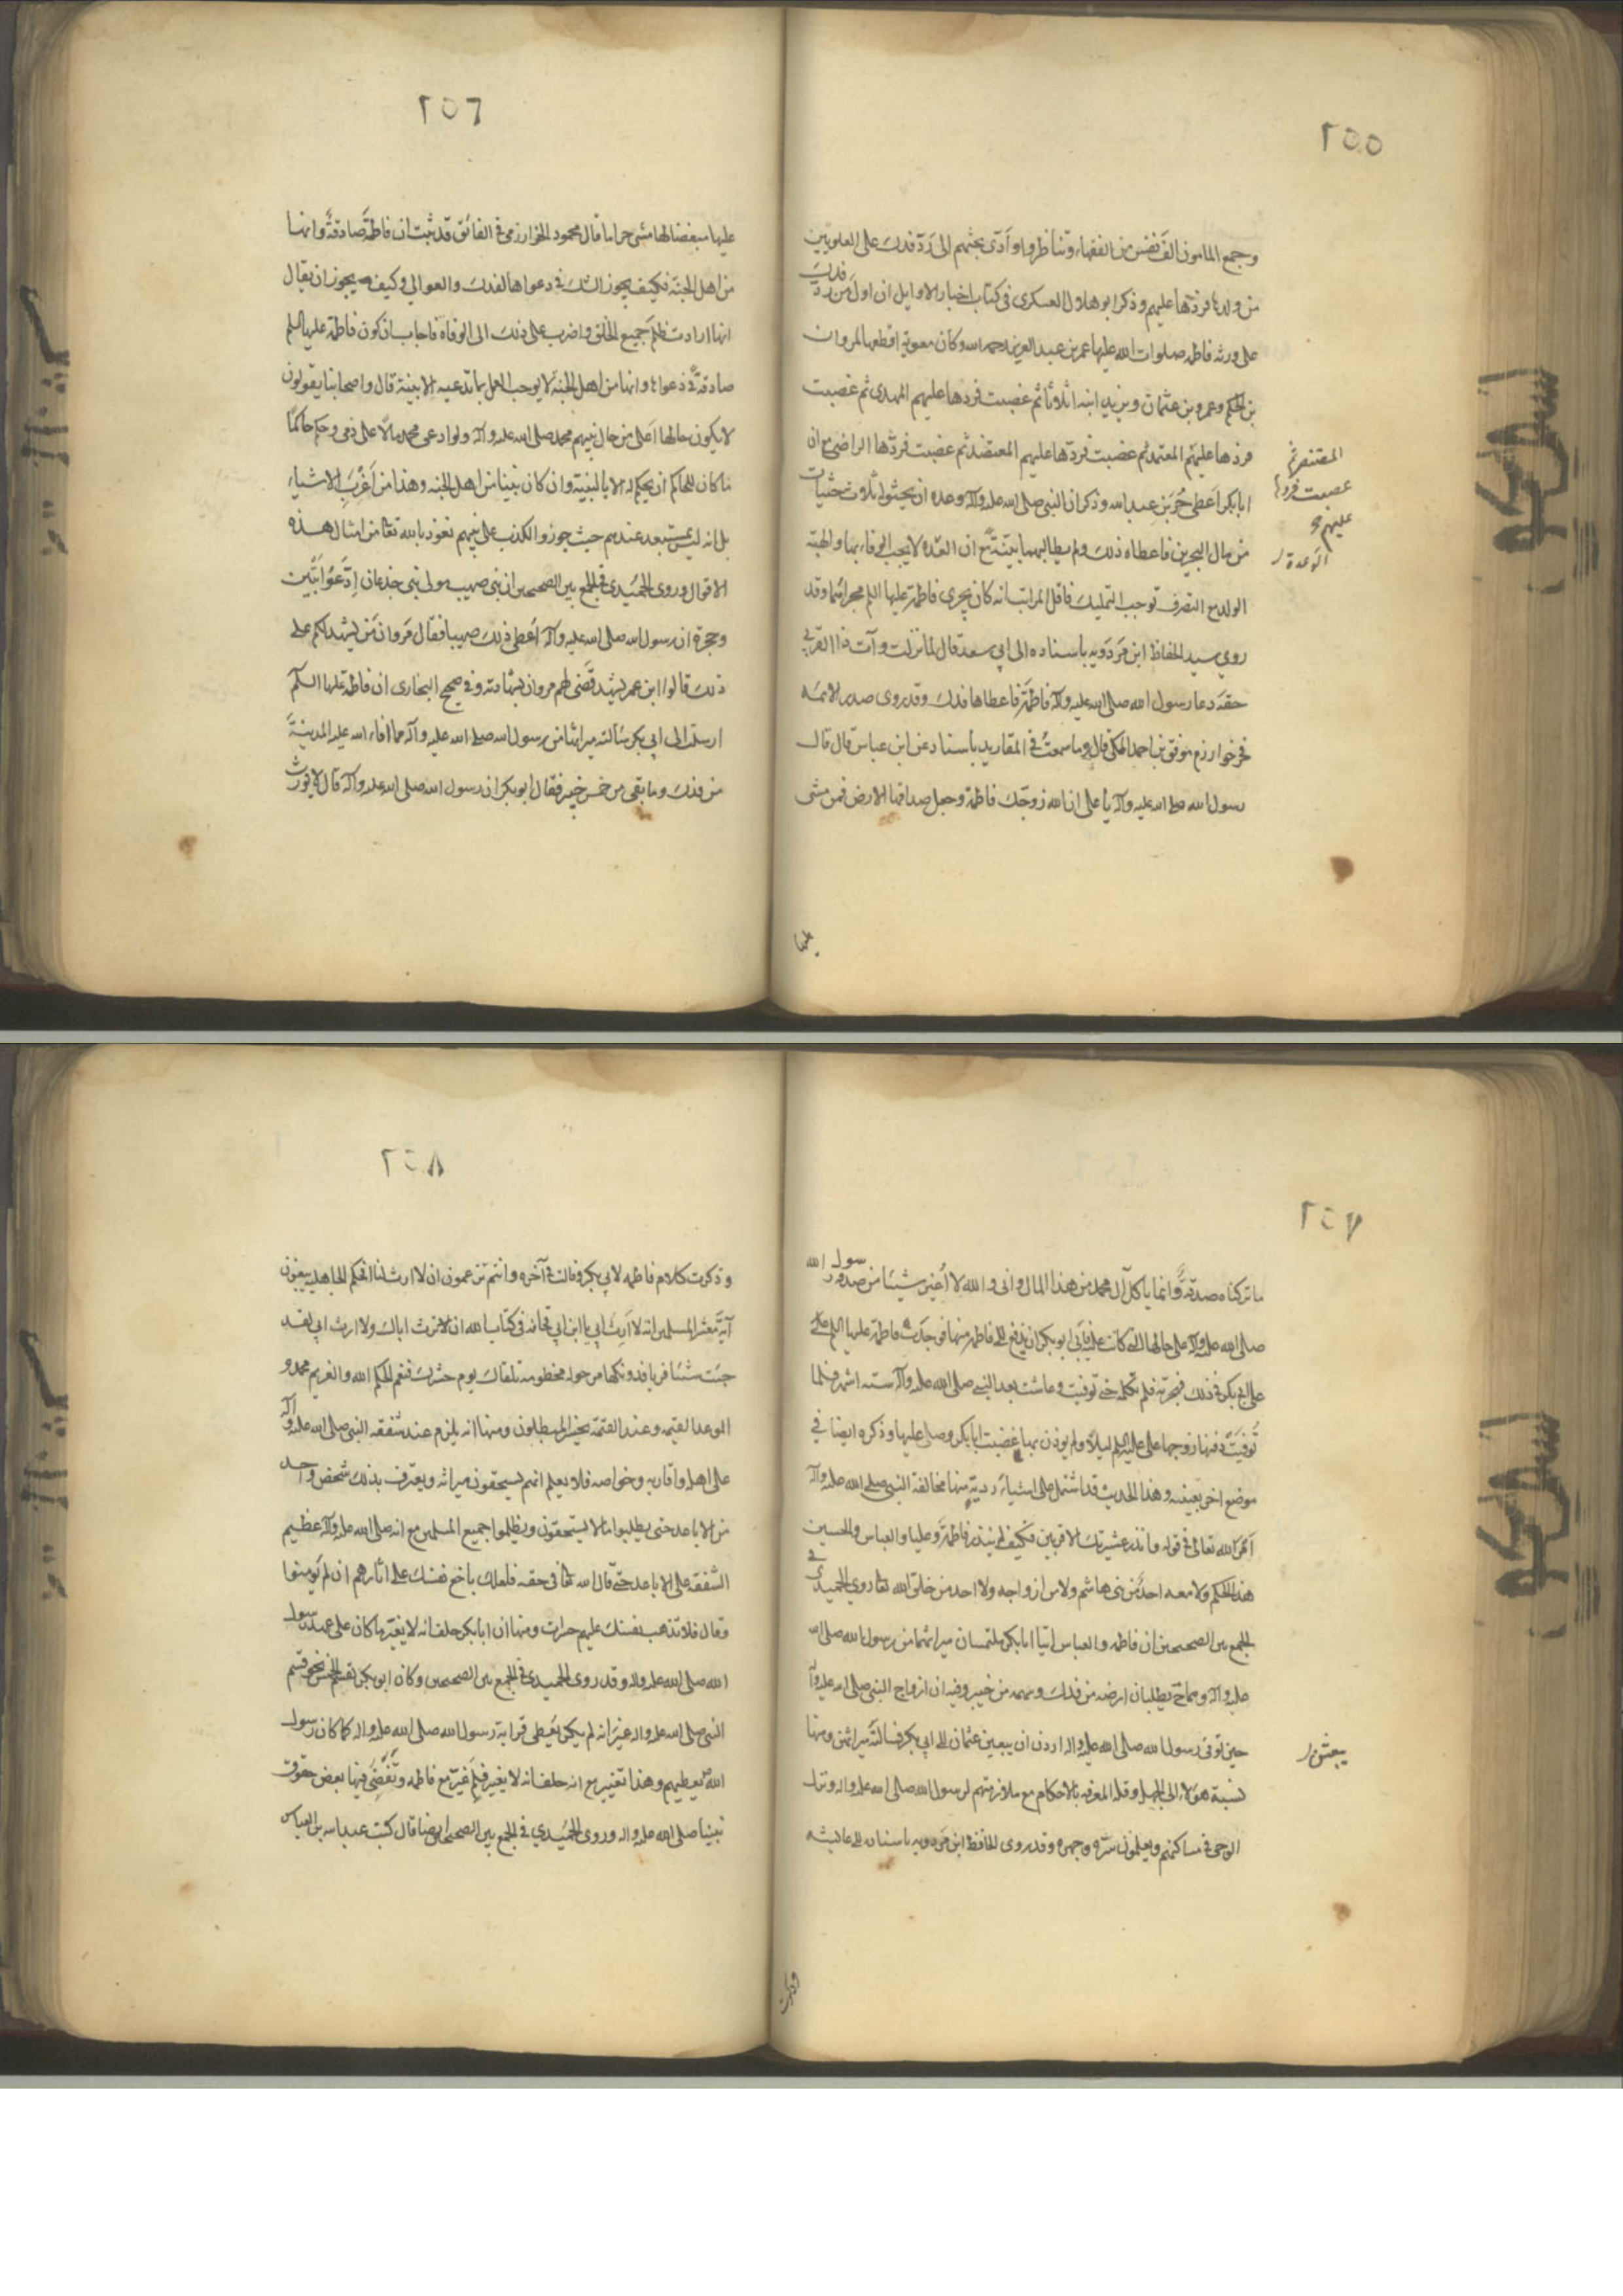 ٢٥٥
وجمع المامون الف نفس من الفقهاء وتناظروا وادى بحثهم الى رد فدك على العلويين
من ولدها فردها عليهم وذكر ابو هلال العسكرى فى كتاب اخبار الاوايل ان اول من رد فدك
على ورثه فاطمه صلوات الله عليها عمر بن عبد العزيز رحمه الله وكان معوية اقطعها لمروان
بن الحكم وعمرو بن عثمان ويزيد ابنه اثلاثا ثم غصبت فردها عليهم المهدى ثم غصبت
فردها عليهم المعتمد ثم غصبت فردها عليهم المعتضد ثم غصبت فردها الراضى مع ان
ابا بكر اعطى جابر بن عبد الله وذكر ان النبى صلى الله عليه وآله وعده ان يحثوا ثلاث حثيات
من مال البحرين فاعطاه ذلك ولم يطالبه ببينة مع ان العدة لا يجب الوفاء بها والهبة
الولد مع التصرف توجب التمليك فاقل المراتب انه كان يجرى فاطمة عليها السلم مجراهما وقد
روى سيد الحفاظ ابن مردويه باسناده الى ابى سعد قال لما نزلت وآت ذا القربى
حقه دعا رسول الله صلى الله عليه وآله فاطمة فاعطاها فدك وقد روى صدر الائمه
فخر خوارزم موفق بن احمد المكى قال ومما سمعت فى المفاريد باسناد عن ابن عباس قال قال
رسول الله صلى الله عليه وآله يا على ان الله زوجك فاطمة وجعل صداقها الارض فمن مشى
المستنصر ثم
غصبت فردها
عليهم
الوعدة
عليها
٢٥٦
عليها مبغضا لها مشى حراما قال محمود الخوارزمى فى الفائق قد ثبت ان فاطمة صادقة وانها
من اهل الجنة فكيف يجوز الشك فى دعواها لفدك والعوالى وكيف يجوز ان يقال
انها ارادت ظلم جميع الخلق واضرب على ذلك الى الوفاة فاجاب بان كون فاطمة عليها السلم
صادقة فى دعواها وانها من اهل الجنة لا يوجب العمل بما تدعيه الا ببينة قال واصحابنا يقولون
لا يكون حالها اعلى من حال نبيهم محمد صلى الله عليه وآله ولو ادعى محمد مالا على ذمى وحكم حاكما
ما كان للحاكم ان يحكم له الا بالبينة وان كان نبينا من اهل الجنه وهذا من اغرب الاشياء
بل انه ليس بمستبعد عندهم حيث جوزوا الكذب على نبيهم نعوذ بالله تعا من امثال هذه
الاقوال وروى الحميدى فى الجمع بين الصحيحين ان بنى صهيب مولى بنى جذعان ادعوا بيتين
وحجرة ان رسول الله صلى الله عليه وآله اعطى ذلك صهيبا فقال مروان من يشهد لكم على
ذلك قالوا ابن عمر يشهد فقضى لهم مروان بشهادته وفى صحيح البخارى ان فاطمة عليها السلم
ارسلت الى ابى بكر سألته ميراثها من رسول الله صلى الله عليه وآله مما افاء الله عليه المدينة
من فدك وما بقى من خمس خيبر فقال ابو بكر ان رسول الله صلى الله عليه وآله قال لا نورث
٢٥٧
ما تركناه صدقة وانما ياكل آل محمد من هذا المال وانى والله لا اغير شيئا من صدقة رسول الله
صلى الله عليه وآله على حالها التى كانت عليه فابى ابو بكر ان يدفع الى فاطمة منها فوجدت فاطمة عليها السلم على
على ابى بكر فى ذلك فهجرته فلم تكلمه حتى توفيت وعاشت بعد النبى صلى الله عليه وآله ستة اشهر فلما
توفيت دفنها زوجها على عليه السلم ليلا ولم يوذن بها غضبت ابا بكر وصلى عليها وذكره ايضا فى
موضع اخر بعينه وهذا الحديث قد اشتمل على اشياء ردية منها مخالفة النبى صلى الله عليه وآله
امر الله تعالى فى قوله وانذر عشيرتك الاقربين فكيف لم ينذر فاطمة وعليا والعباس والحسين
هذا الحكم ولا معه احد من بنى هاشم ولا من ازواجه ولا احد من خلق الله تعا روى الحميدى فى
الجمع بين الصحيحين ان فاطمه والعباس اتيا ابا بكر يلتمسان ميراثهما من رسول الله صلى الله
عليه وآله وهما ح يطلبان ارضه من فدك وسهمه من خيبر وفيه ان ازواج النبى صلى الله عليه وآله
حين توفى رسول الله صلى الله عليه واله اردن ان يبعثن عثمان الى ابى بكر فيسألنه ميراثهن ومنها
نسبة هؤلاء الى الجهل وقلة المعرفه بالاحكام مع ملازمتهم لرسول الله صلى الله عليه واله ونزل
الوحى فى مساكنهم ويعلمون سره وجهره وقد روى الحافظ ابن مردويه باسناده الى عايشه
يبعثن
وذكرت
٢٥٨
وذكرت كلام فاطمه لابى بكر وقالت فى آخره وانتم تزعمون ان لا ارث لنا افحكم الجاهلية يبغون
آية معشر المسلمين انه لا ارث ابى يا ابن ابى قحافة فى كتاب الله ان ترث اباك ولا ارث ابى لقد
جئت شيئا فريا فدونكها مرحولة مخطومة تلقاك يوم حشرك فنعم الحكم الله والغريم محمد و
الموعد القيمه وعند القيمة يخسر المبطلون ومنها انه يلزم عند شفقه النبى صلى الله عليه وآله
على اهله واقاربه وخواصه فلا يعلم انهم لا يستحقون ميراثه ويعترف بذلك شخص واحد
من الاباعد حتى يطلبوا ما لا يستحقون ويظلموا جميع المسلمين مع انه صلى الله عليه وآله عظيم
الشفقه على الاباعد حتى قال الله تعا فى حقه فلعلك باخع نفسك على اثارهم ان لم يومنوا
وقال فلا تذهب نفسك عليهم حسرات ومنها ان ابا بكر حلف انه لا يغير ما كان على عهد رسول
الله صلى الله عليه واله وقد روى الحميدى فى الجمع بين الصحيحين وكان ابو بكر يقسم الخمس نحو قسم
النبى صلى الله عليه واله غير انه لم يكن يعطى قرابة رسول الله صلى الله عليه واله كما كان رسول
الله يعطيهم وهذا تغيير مع انه حلف انه لا يغير فلم غير مع فاطمه وتقضى فيها بعض حقوق
نبينا صلى الله عليه واله وروى الحميدى فى الجمع بين الصحيحين ايضا قال كتب عبد الله بن العباس